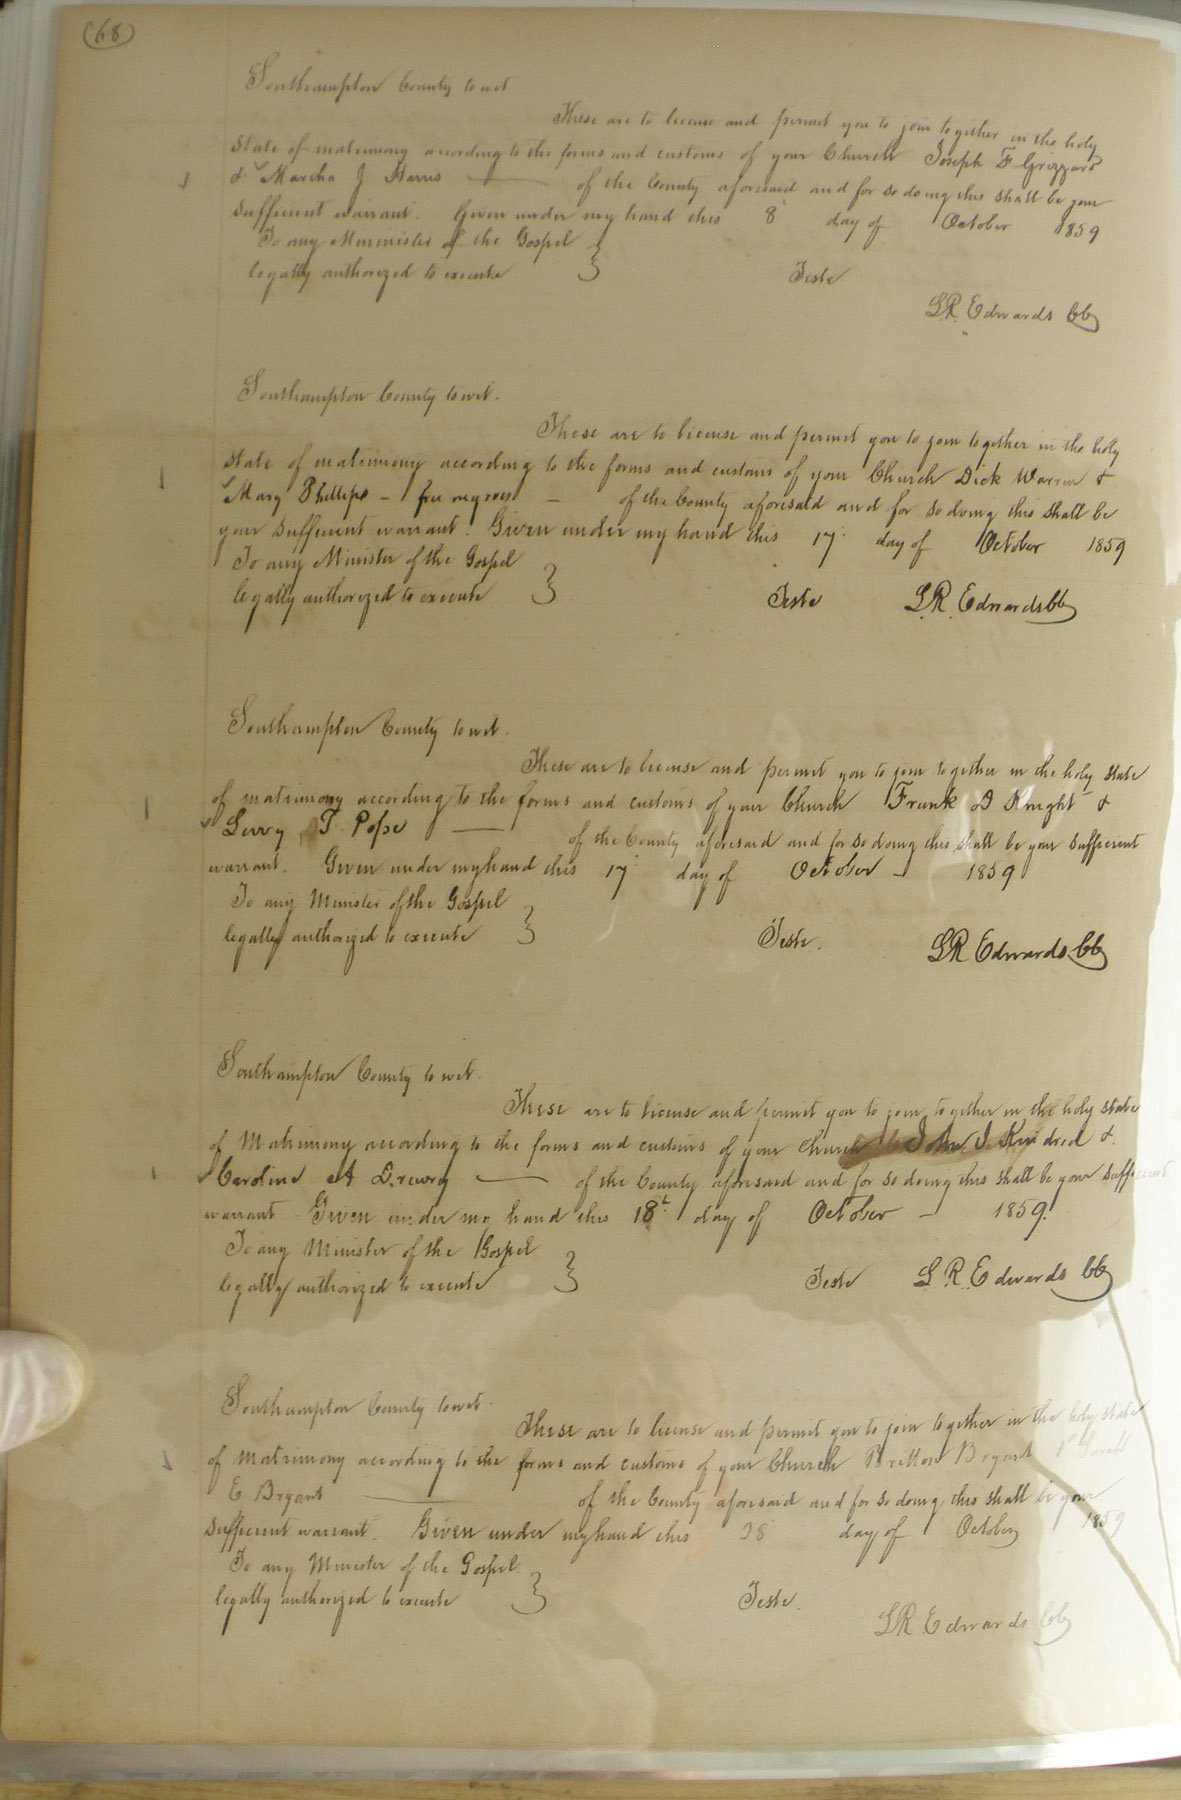 (68)
Southampton County to wit
These are to license and permit you to join together in the holy
state of matrimony according to the forms and customs of your Church Joseph F Grizzard
& Martha J Harris of the County aforesaid and for so doing this shall be your
sufficient warrant. Given under my hand this 8 day of October 1859
To any Mminister of the Gospel
legally authorized to execute } Teste
L R Edwards CC
Southampton County to wit.
These are to license and permit you to join together in the holy
state of matrimony according to the forms and customs of your Church Dick Warren &
Mary Phillips – free negroes – of the County aforesaid and for so doing this shall be
your sufficient warrant. Given under my hand this 17 day of October 1859
To any Minister of the Gospel
legally authorized to execute } Teste L R Edwards CC
Southampton County to wit.
These are to license and permit you to join together in the holy state
of matrimony according to the forms and customs of your Church Frank D Knight &
T. Pope — of the County aforesaid and for so doing this shall be your sufficient
warrant. Given under my hand this 17 day of October – 1859
To any Minister of the Gospel
legally authorized to execute } Teste. L R Edwards CC
Southampton County to wit.
These are to license and permit you to join together in the holy state
of Matrimony according to the forms and customs of your Church John J. Kindred &
Caroline A Drewry — of the County aforesaid and for so doing this shall be your sufficient
warrant Given under my hand this 18t day of October – 1859.
To any Minister of the Gospel
legally authorized to execute } Teste L R Edwards CC
Southampton County to wit.
These are to license and permit you to join together in the holy state
of matrimony according to the forms and customs of your Church Britton Bryant & Sarah
E Bryant — of the County aforesaid and for so doing this shall be your
sufficient warrant. Given under my hand this 28 day of October 1859
To any Minister of the Gospel
legally authorized to execute } Teste.
L R Edwards CC